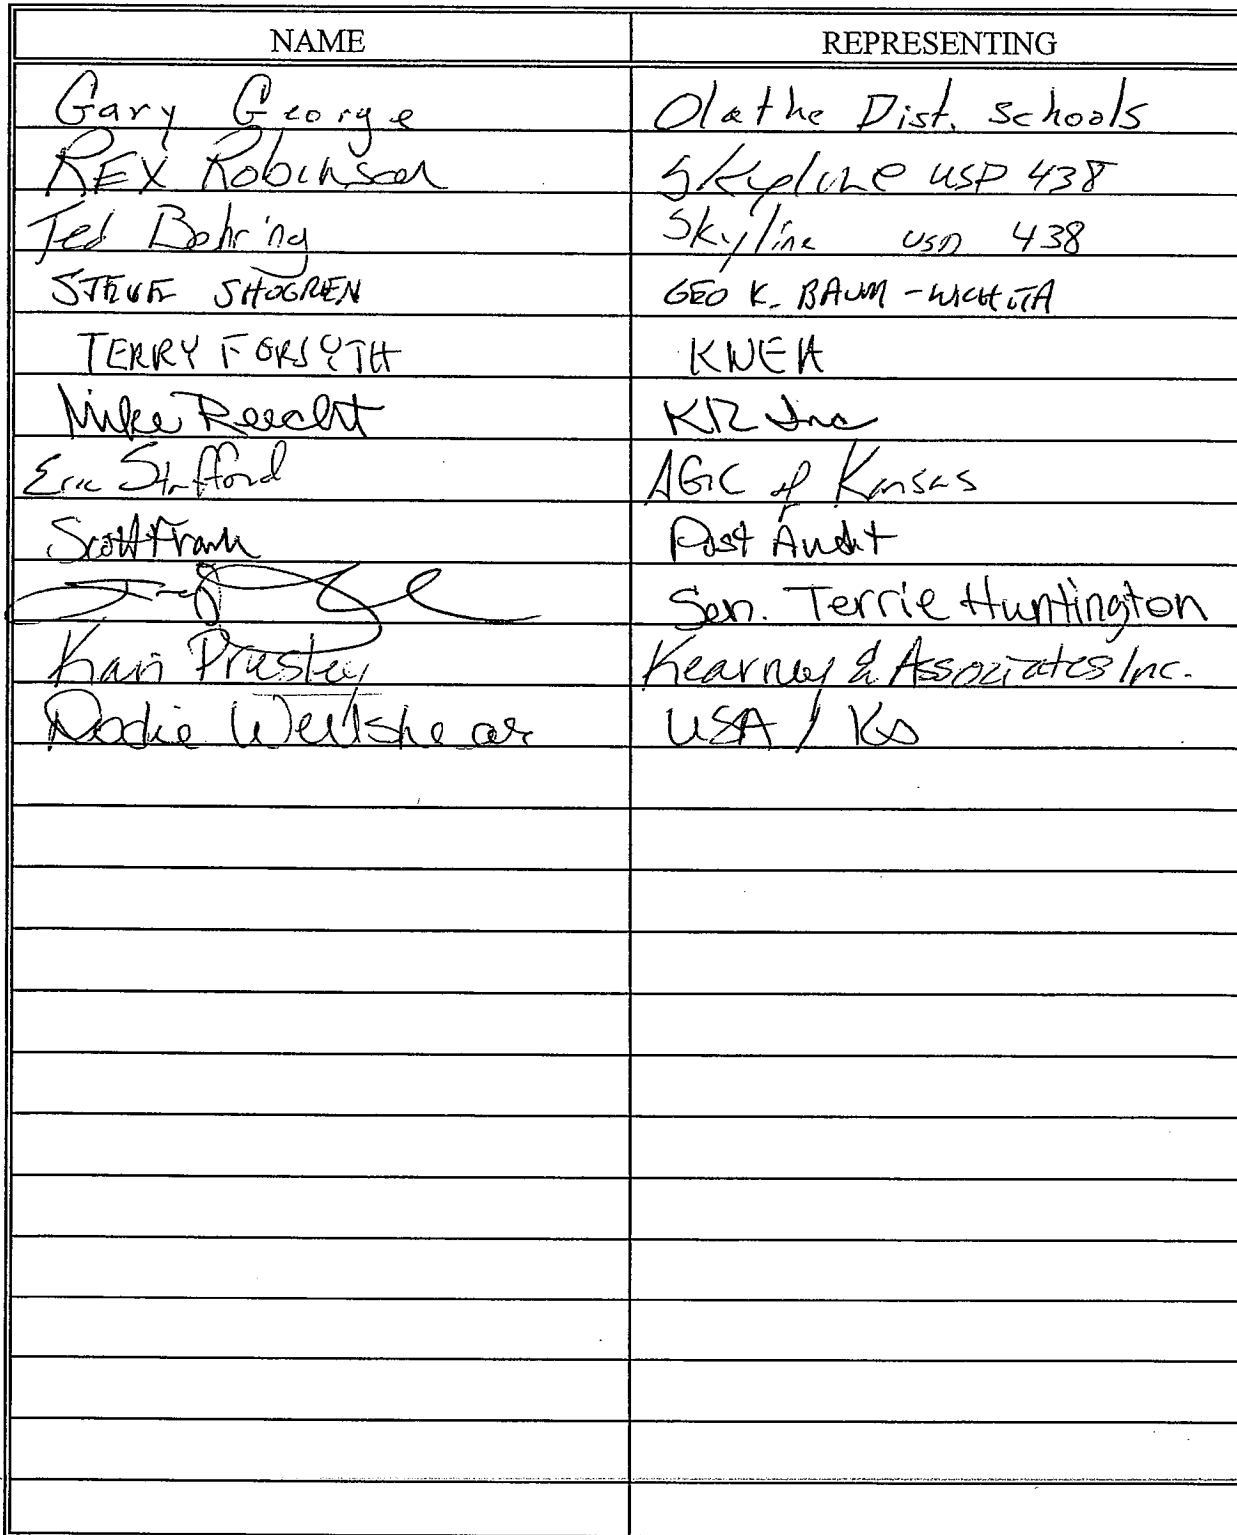 NAME REPRESENTING
Gary George Olathe Dist. Schools
REX Robinson Skyline USD 438
Ted Bohring Skyline USD 438
STEVE SHOGREN GEO K. BAUM - WICHITA
TERRY FORSYTH KNEA
Mike Reecht Inc
Eric Stafford AGC of Kansas
Scott Frank Post Audit
Sen. Terrie Huntington
Kari Presley Kearney & Associates Inc.
Dodie Wellshear USA / Ks